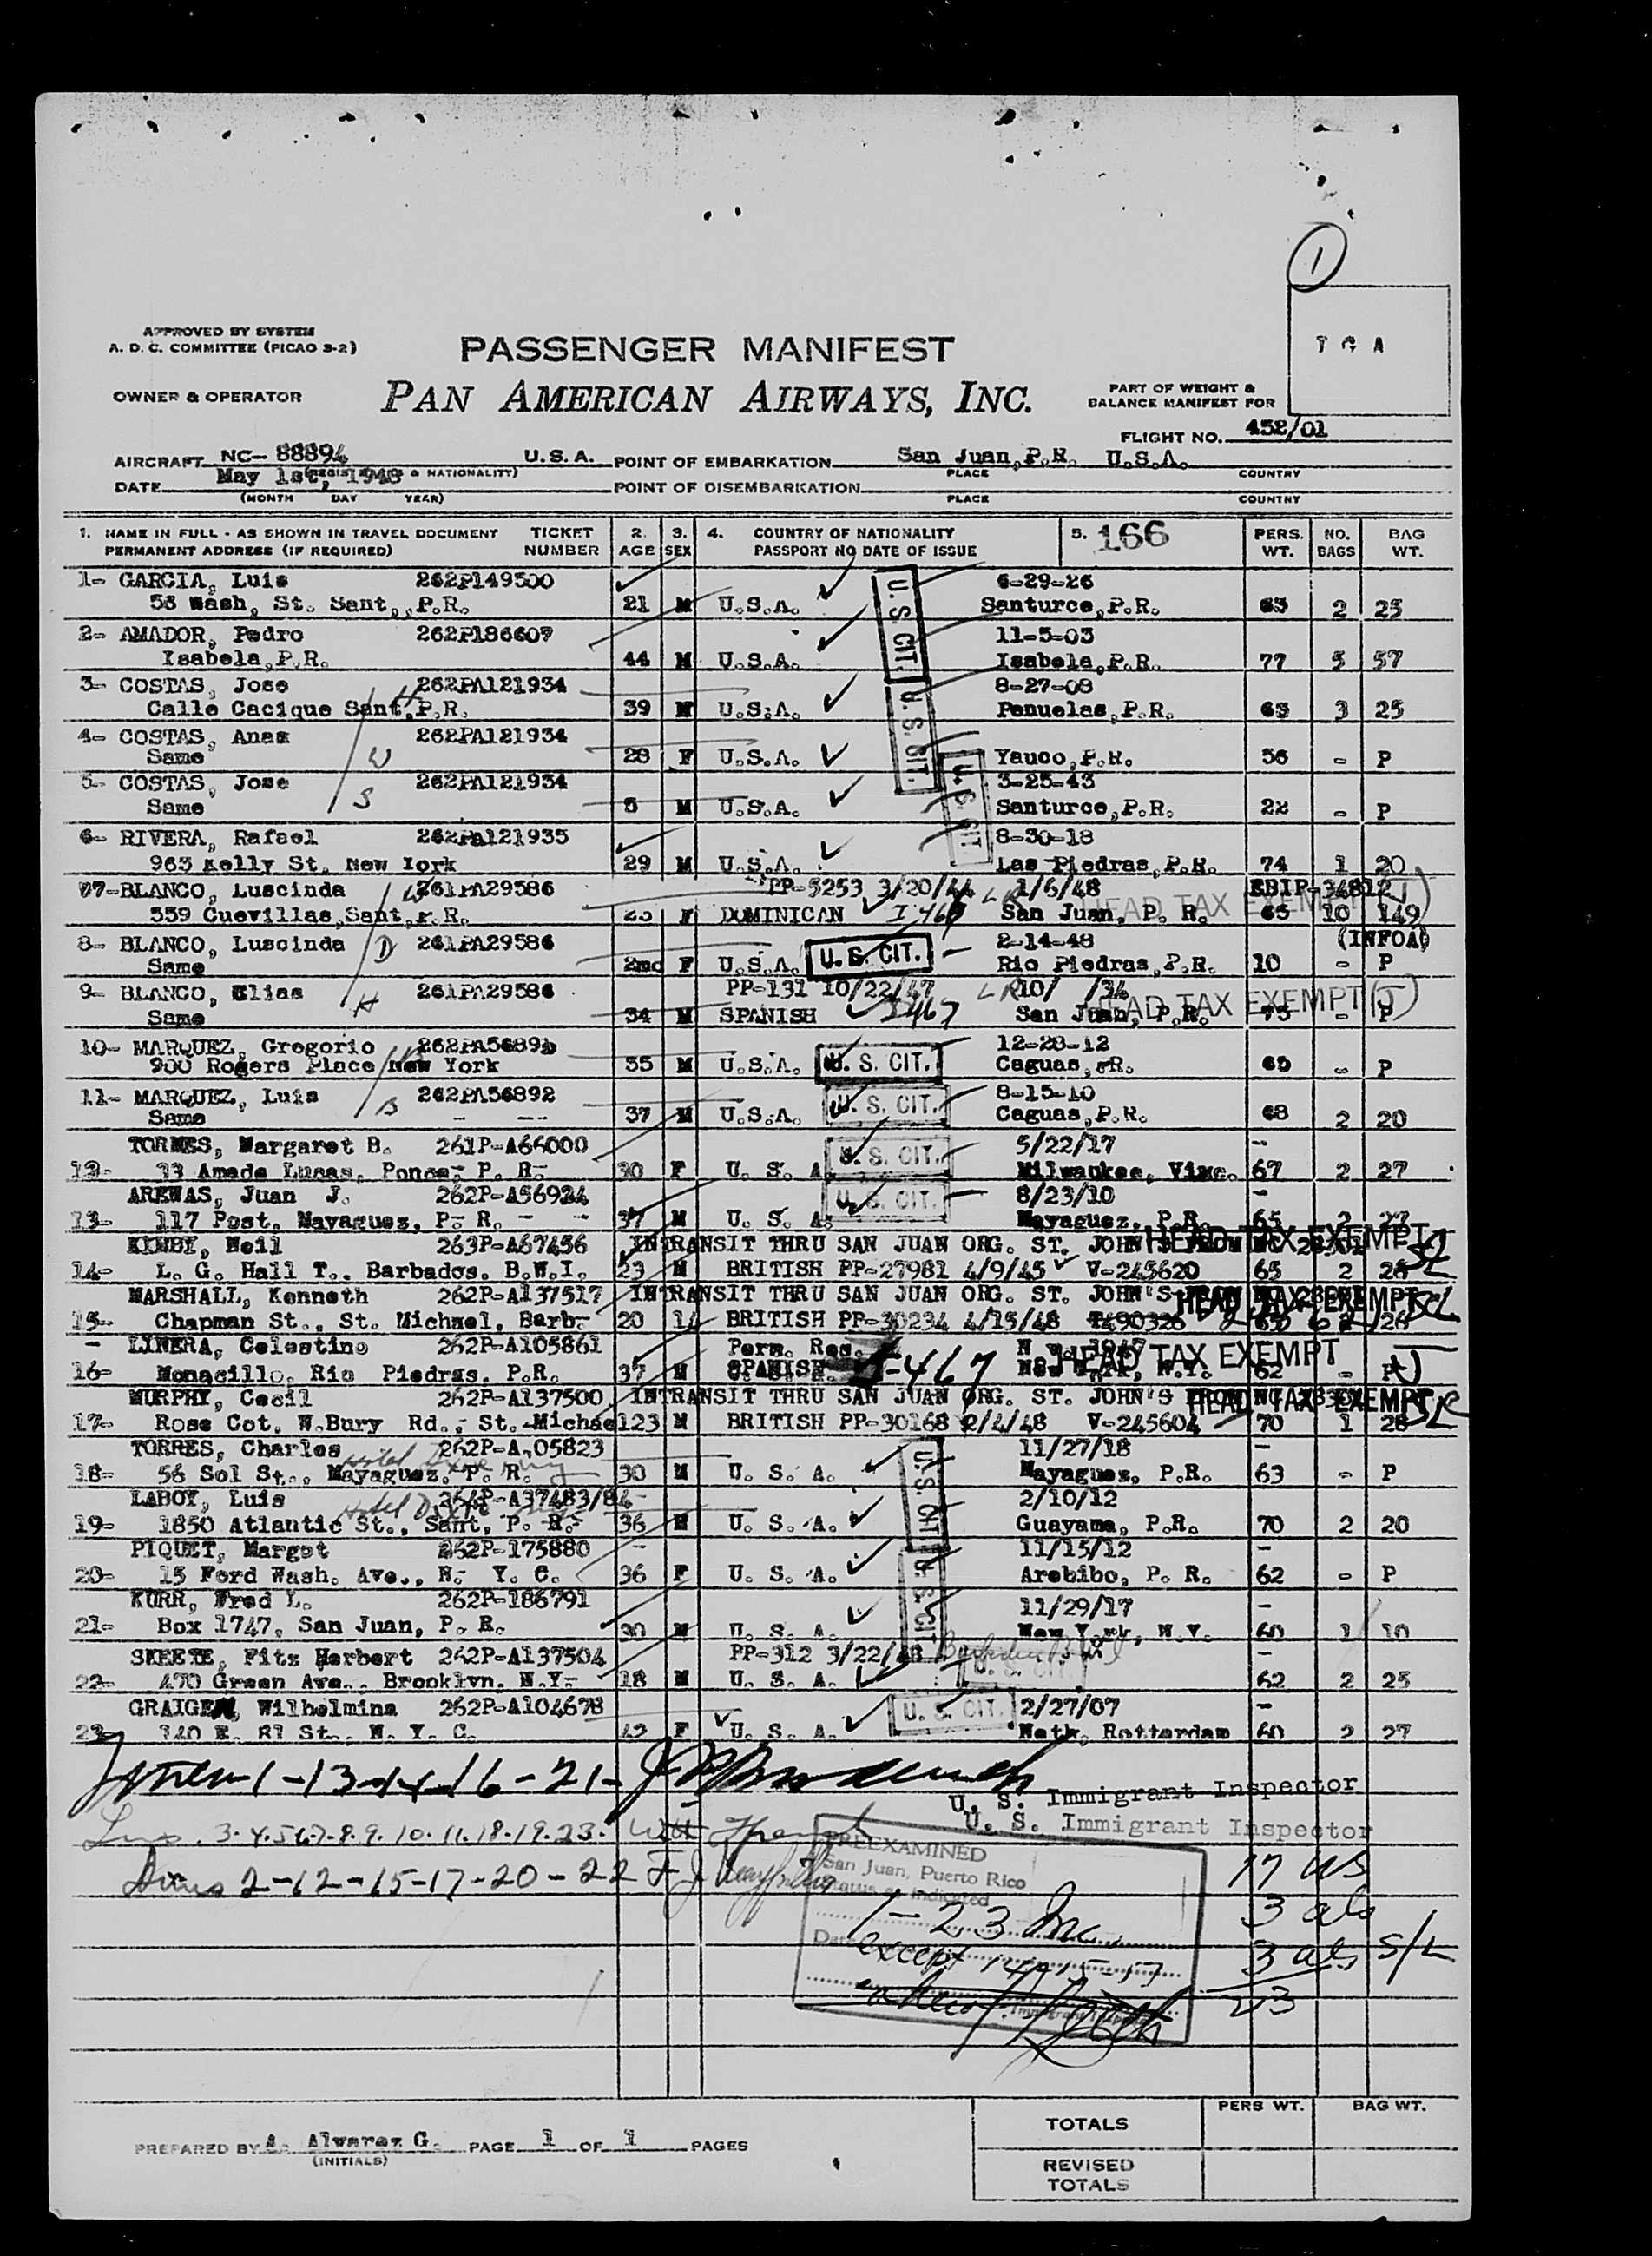 1
APPROVED BY SYSTEM
A. D. C. COMMITTEE (PICAO S-2)
PASSENGER MANIFEST
T G A
OWNER & OPERATOR
PAN AMERICAN AIRWAYS, INC.
PART OF WEIGHT &
BALANCE MANIFEST FOR
FLIGHT NO. 452/01
AIRCRAFT NC- 88894 U.S.A. POINT OF EMBARKATION San Juan, P.R. U.S.A.
& NATIONALITY) PLACE COUNTRY
DATE May 1st, 1948 POINT OF DISEMBARKATION
(MONTH DAY YEAR) PLACE COUNTRY
1. NAME IN FULL - AS SHOWN IN TRAVEL DOCUMENT TICKET 2. 3. 4. COUNTRY OF NATIONALITY 5. 166 PERS. NO. BAG
PERMANENT ADDRESS (IF REQUIRED) NUMBER AGE SEX PASSPORT NO DATE OF ISSUE WT. BAGS WT.
1- GARCIA, Luis 262P149500 6-29-26
58 Wash, St. Sant,,P.R. 21 M U.S.A. U. S. CIT. Santurce,P.R. 63 2 25
2- AMADOR, Pedro 262P186607 11-5-03
Isabela,P.R. 44 M U.S.A. Isabela,P.R. 77 5 57
3- COSTAS, Jose 262PA121934 8-27-08
Calle Cacique Sant.P.R. H 39 M U.S.A. U. S. CIT. Penuelas,P.R. 63 3 25
4- COSTAS, Anas 262PA121934
Same W 28 F U.S.A. Yauco,P.R. 56 - P
5- COSTAS, Jose 262PA121934 3-25-43
Same S 5 M U.S.A. U. S. CIT. Santurce,P.R. 22 - P
6- RIVERA, Rafael 262PA121935 8-30-18
963 Kelly St. New York 29 M U.S.A. Las Piedras,P.R. 74 1 20
7-BLANCO, Luscinda W 261PA29586 PP-5253 3/20/44 LR 1/6/48 EBIP-34812
559 Cuevillas,Sant,P.R. 25 F DOMINICAN I 467 San Juan, P. R. HEAD TAX EXEMPT (J) 65 10 149
8- BLANCO, Luscinda D 261PA29586 2-14-48 (INFOA)
Same 2mo F U.S.A. U. S. CIT. Rio Piedras,P.R. 10 - P
9- BLANCO, Elias 261PA29586 PP-131 10/22/47 LR 10/ /34
Same H 34 M SPANISH I467 San Juan, P.R. HEAD TAX EXEMPT (J) 75 - P
10- MARQUEZ, Gregorio 12-28-12
900 Rogers Place New York 35 M U.S.A. U. S. CIT. Caguas, 65 - P
11- MARQUEZ, Luis 262PA56892 8-15-10
Same B 37 M U.S.A. U. S. CIT. Caguas,P.R. 68 2 20
TORMES, Margaret B. 261P-A66000 5/22/17
12- 33 Amade Lucas, Ponce, P. R. 30 F U. S. A. U. S. CIT. Milwaukee, 67 2 27
AREWAS, Juan J. 262P-A56924 8/23/10
13- 117 Post. Mayaguez, P. R. 37 M U. S. A. U. S. CIT. Mayaguez, P.R. 65 2 27
Neil 263P-A67456 INTRANSIT THRU SAN JUAN ORG. ST. JOHN'S HEAD TAX EXEMPT
14- L. G. Hall T., Barbados. B.W.I. 23 M BRITISH PP-27981 4/9/45 V-245620 65 2 28
MARSHALL, Kenneth 262P-A137517 INTRANSIT THRU SAN JUAN ORG. ST. JOHN'S HEAD TAX EXEMPT
15- Chapman St., St. Michael, Barb. 20 BRITISH PP-30234 4/15/48 26
LINERA, Celestino 262P-A105861 Perm. Res. 1947
16- Monacillo, Rio Piedras. P.R. 37 M SPANISH I-467 HEAD TAX EXEMPT J 62 - P
MURPHY, Cecil 262P-A137500 INTRANSIT THRU SAN JUAN ORG. ST. JOHN'S HEAD TAX EXEMPT SL
17- Rose Cot. W.Bury Rd., St. Michael 23 M BRITISH PP-30168 2/4/48 V-245604 70 1 28
TORRES, Charles 11/27/18
18- 56 Sol St., Mayaguez, P. R. 30 M U. S. A. U. S. CIT. Mayaguez, P.R. 63 - P
LABOY, Luis 264P-A37483/84 2/10/12
19- 1850 Atlantic St., Sant, P. R. 36 M U. S. A. Guayama, P.R. 70 2 20
PIQUET, Margot 262P-175880 11/15/12
20- 15 Ford Wash. Ave., N. Y. C. 36 F U. S. A. U. S. CIT Arebibo, P. R. 62 - P
KURR, Fred L. 262P-186791 11/29/17
21- Box 1747, San Juan, P. R. 30 M U. S. A. New York, N.Y. 60 1 10
SKEETE, Fitz Herbert 262P-A137504 PP-312 3/22/48
22- 470 Green Ave., Brooklyn. N.Y. 18 M U. S. A. U. S. CIT 62 2 25
Wilhelmina 262P-A104678 2/27/07
23- 340 E. 81 St., N. Y. C. 42 F U. S. A. U. S. CIT. Neth, Rotterdam 60 2 27
1-13-14-16-21-
U. S. Immigrant Inspector
U. S. Immigrant Inspector
3.4.5.6.7.8.9.10.11.18.19.23.
2-12-15-17-20-22
PREEXAMINED
San Juan, Puerto Rico
Status as indicated
1-23 Inc.
Date except 14-15-17
Immigrant Inspector
17 US
3 als
3 als S/L
23
PERS WT. BAG WT.
TOTALS
PREPARED BY A. Alvarez G. PAGE 1 OF 1 PAGES
(INITIALS)
REVISED
TOTALS